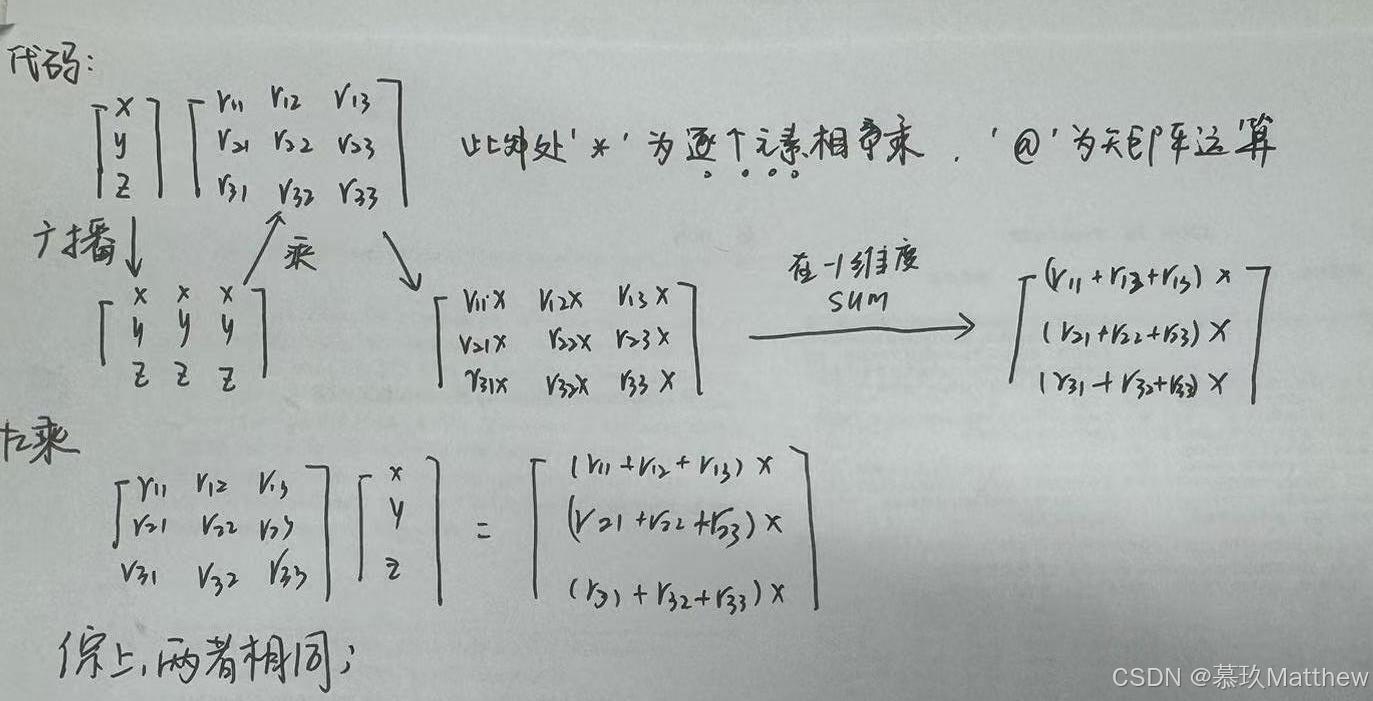 代码:
[x y z] [r11 r12 r13
r21 r22 r23
r31 r32 r33] 此处'*'为逐个元素相乘. '@'为矩阵运算
广播 乘
[x x x
y y y
z z z]
[r11x r12x r13x
r21x r22x r23x
r31x r32x r33x]
在-1维度
sum
[(r11+r13+r13)x
(r21+r22+r23)x
(r31+r32+r33)x]
左乘
[r11 r12 r13
r21 r22 r23
r31 r32 r33] [x y z] = [(r11+r12+r13)x
(r21+r22+r23)x
(r31+r32+r33)x]
综上,两者相同;
CSDN @慕玖Matthew